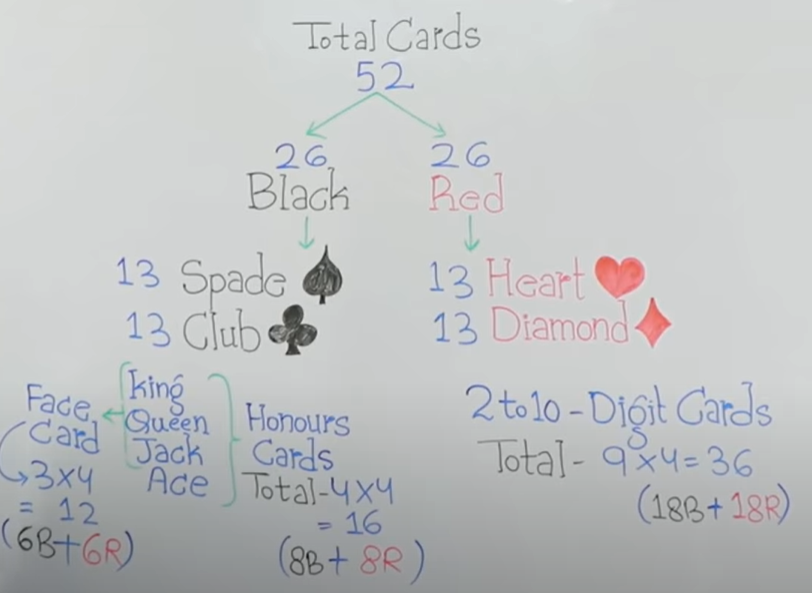 Total Cards
52
26 26
Black Red
13 Spade 13 Heart
13 Club 13 Diamond
Face
Card
3×4
= 12
(6B+6R)
King
Queen
Jack
Ace
Honours
Cards
Total-4×4
= 16
(8B+ 8R)
2 to 10 - Digit Cards
Total- 9×4=36
(18B+18R)